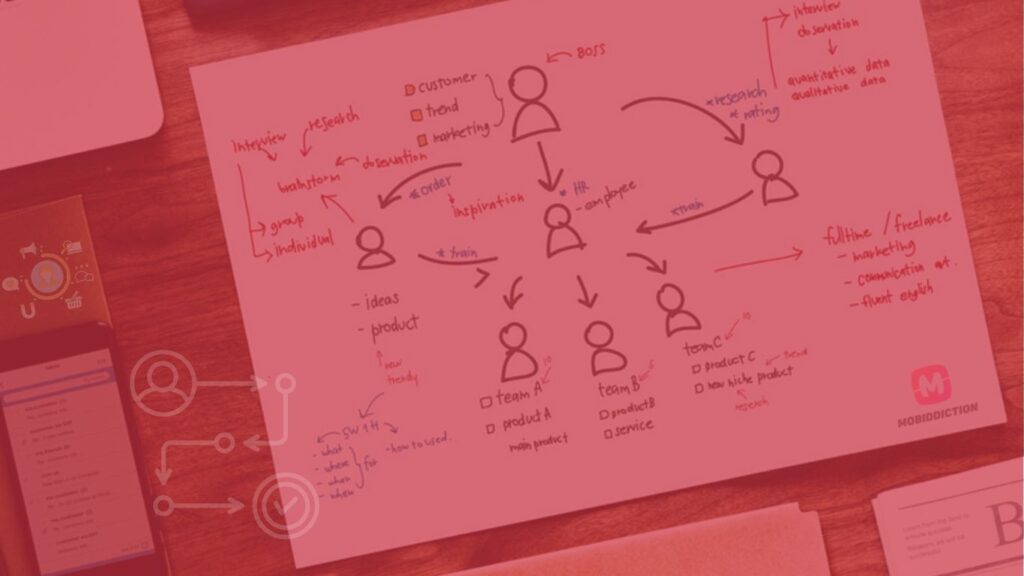 BOSS
customer
trend
marketing
interview
observation
quantitative data
qualitative data
* research
* rating
interview
research
observation
brainstorm
group
individual
* order
inspiration
* HR
- employee
* train
* train
- ideas
- product
new
trendy
5W1H
- what
- where
- when
for
- how to used.
fulltime / freelance
- marketing
- communication
- fluent english
team A
product A
main product
team B
product B
service
team C
product C
new niche product
trend
research
10
M
MOBIDDICTION
B